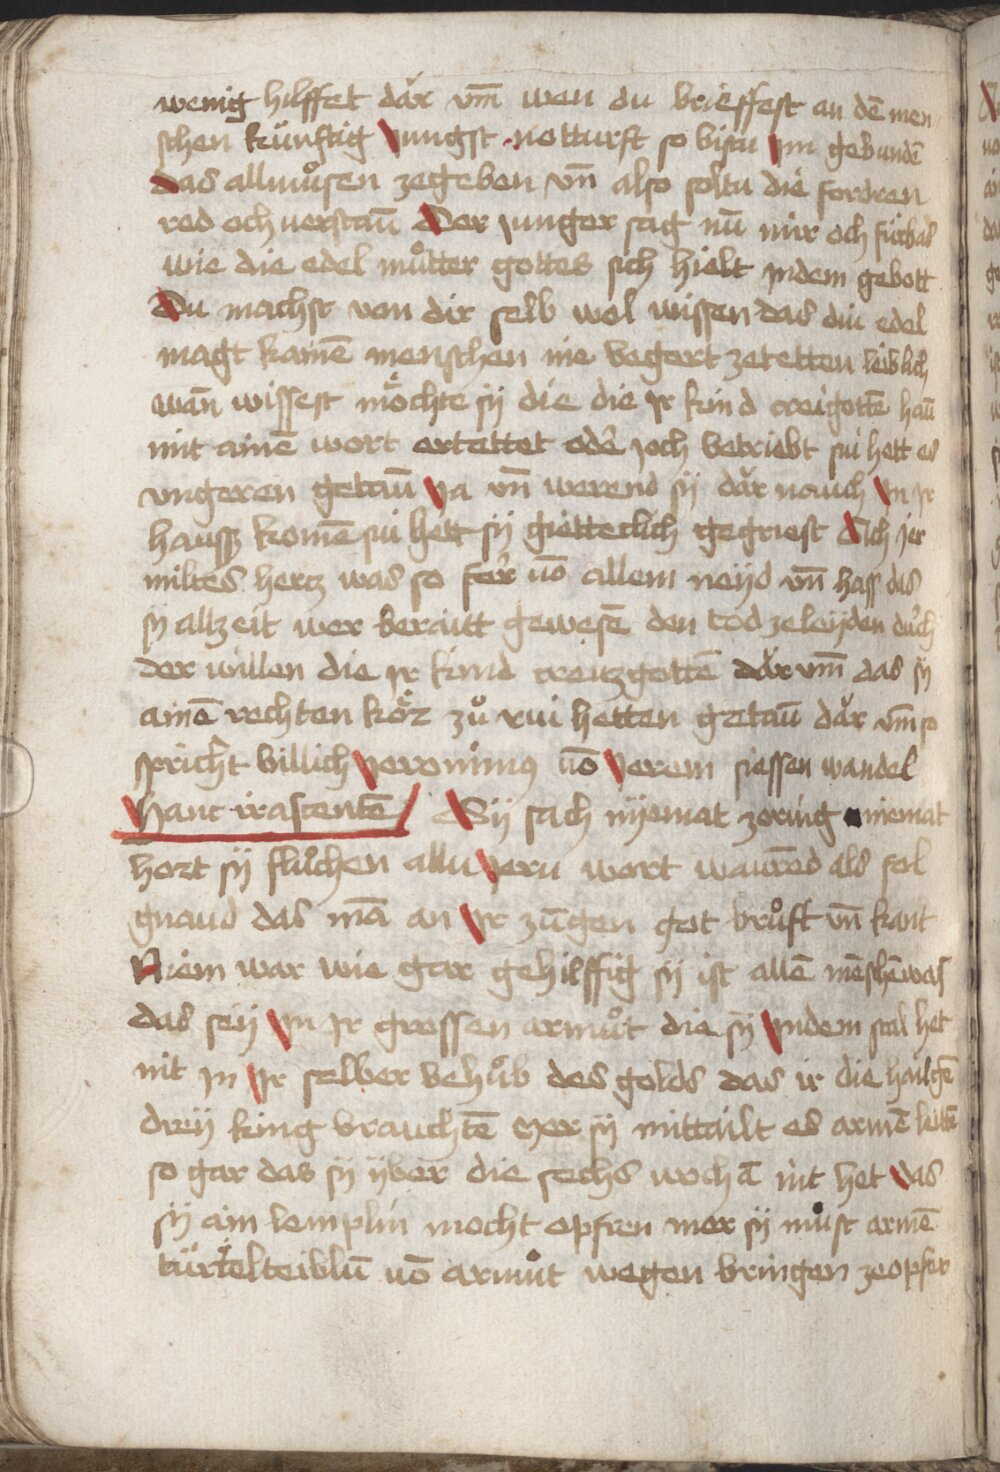 wenig hilffet dar vm̄ wen du brieffest an dē men
schen künftig Jungst notturft so bistu Jm gebundē
Das allmůsen zegeben vn̄ also soltu die fordren
red och verstan̄ Der junger sag nū mir och fürbas
wie die edel můtter gottes sich hielt jndem gebott
Du machst von dir selb wol wissen das diu edel
magt kainē menschen nie begert zetetten leiblich
wān wissest möchte sÿ die die jr kind creigottē haū
mit ainē wort ertettet oder joch betriebt sui hett es
vngeren getaū Ja vn̄ werend sÿ dar nauch Jn jr
hauss komē sui hett sÿ giettetlich gegriest Dich jer
miltes hertz was so fer vō allem neÿd vn̄ hass das
sÿ allzeit wer beraitt gewesē den tod zeleÿden durch
der willen die jr kind creuzgottē dar vm̄ das sÿ
ainē rechten kör zů rui hetten getaū dar vm̄ so
spricht billich Jeronimus vō Jerem siessen wandel
Hanc irascentē Sÿ sach nÿemat zornig niemat
hort sÿ flůchen allu Jeru wort waurēd als fol
gnaud das mā an Jr zūgen got brůft vn̄ kant
Niem war wie gar gehilffig sÿ ist allē mēschē was
das seÿ Jn jr grossen armůt die sÿ Jndem stal het
nit jn Jr selber behůb des golds das ir die hailgē
dreÿ king brauchtē mer sÿ mittailt es armē leitē
so gar das sÿ ÿber die sechs wochā nit het Das
sÿ ain lemplin mocht opfren mer sÿ můst armē
türtelteiblū vō armůt wegen bringen zeopfer